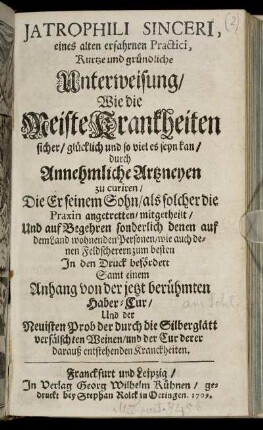 JATROPHILI SINCERI,
eines alten erfahrnen Practici,
Kurtze und gründliche
Unterweisung/
Wie die
Meiste Kranckheiten
sicher/ glücklich und so viel es seyn kan/
durch
Annehmliche Artzneyen
zu curiren/
Die Er seinem Sohn/ als solcher die
Praxin angetretten/ mitgetheilt/
Und auf Begehren sonderlich denen auf
dem Land wohnenden Personen/ wie auch de-
nen Feldscherern zum besten
In den Druck befördert
Samt einem
Anhang von der jetzt berühmten
Haber-Cur/
Und der
Neuisten Prob der durch die Silberglätt
verfälschten Weinen/ und der Cur derer
darauß entstehenden Kranckheiten.
Franckfurt und Leipzig/
In Verlag Georg Wilhelm Kühnen/ ge-
druckt bey Stephan Rolck in Oettingen.
(2)